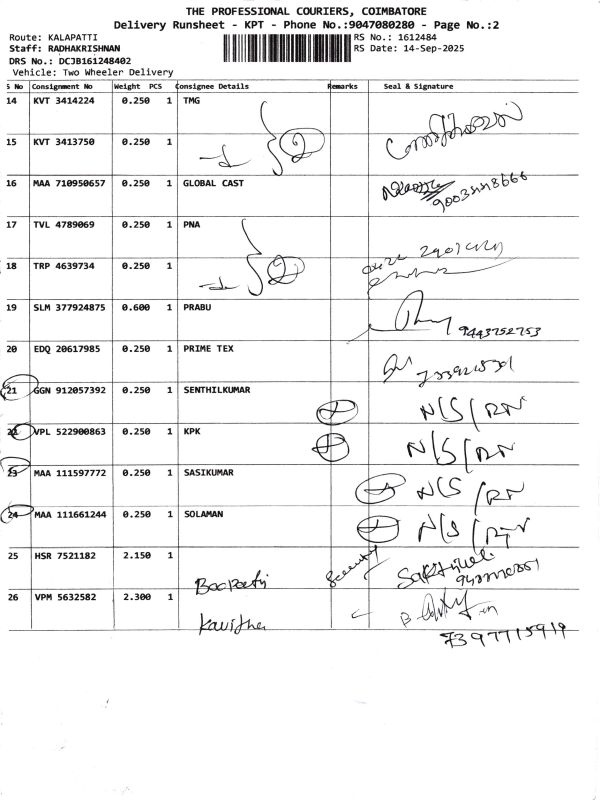 THE PROFESSIONAL COURIERS, COIMBATORE
Delivery Runsheet - KPT - Phone No.:9047080280 - Page No.:2
Route: KALAPATTI
Staff: RADHAKRISHNAN
DRS No.: DCJB161248402
Vehicle: Two Wheeler Delivery
RS No.: 1612484
RS Date: 14-Sep-2025
S No Consignment No Weight PCS Consignee Details Remarks Seal & Signature
14 KVT 3414224 0.250 1 TMG
15 KVT 3413750 0.250 1
16 MAA 710950657 0.250 1 GLOBAL CAST
17 TVL 4789069 0.250 1 PNA
18 TRP 4639734 0.250 1
19 SLM 377924875 0.600 1 PRABU 9443752753
20 EDQ 20617985 0.250 1 PRIME TEX
21 GGN 912057392 0.250 1 SENTHILKUMAR N/S/RN
22 VPL 522900863 0.250 1 KPK N/S/RN
23 MAA 111597772 0.250 1 SASIKUMAR N/S/RN
24 MAA 111661244 0.250 1 SOLAMAN N/S/RN
25 HSR 7521182 2.150 1 Boopathi Security
26 VPM 5632582 2.300 1 Kavitha
7397715919